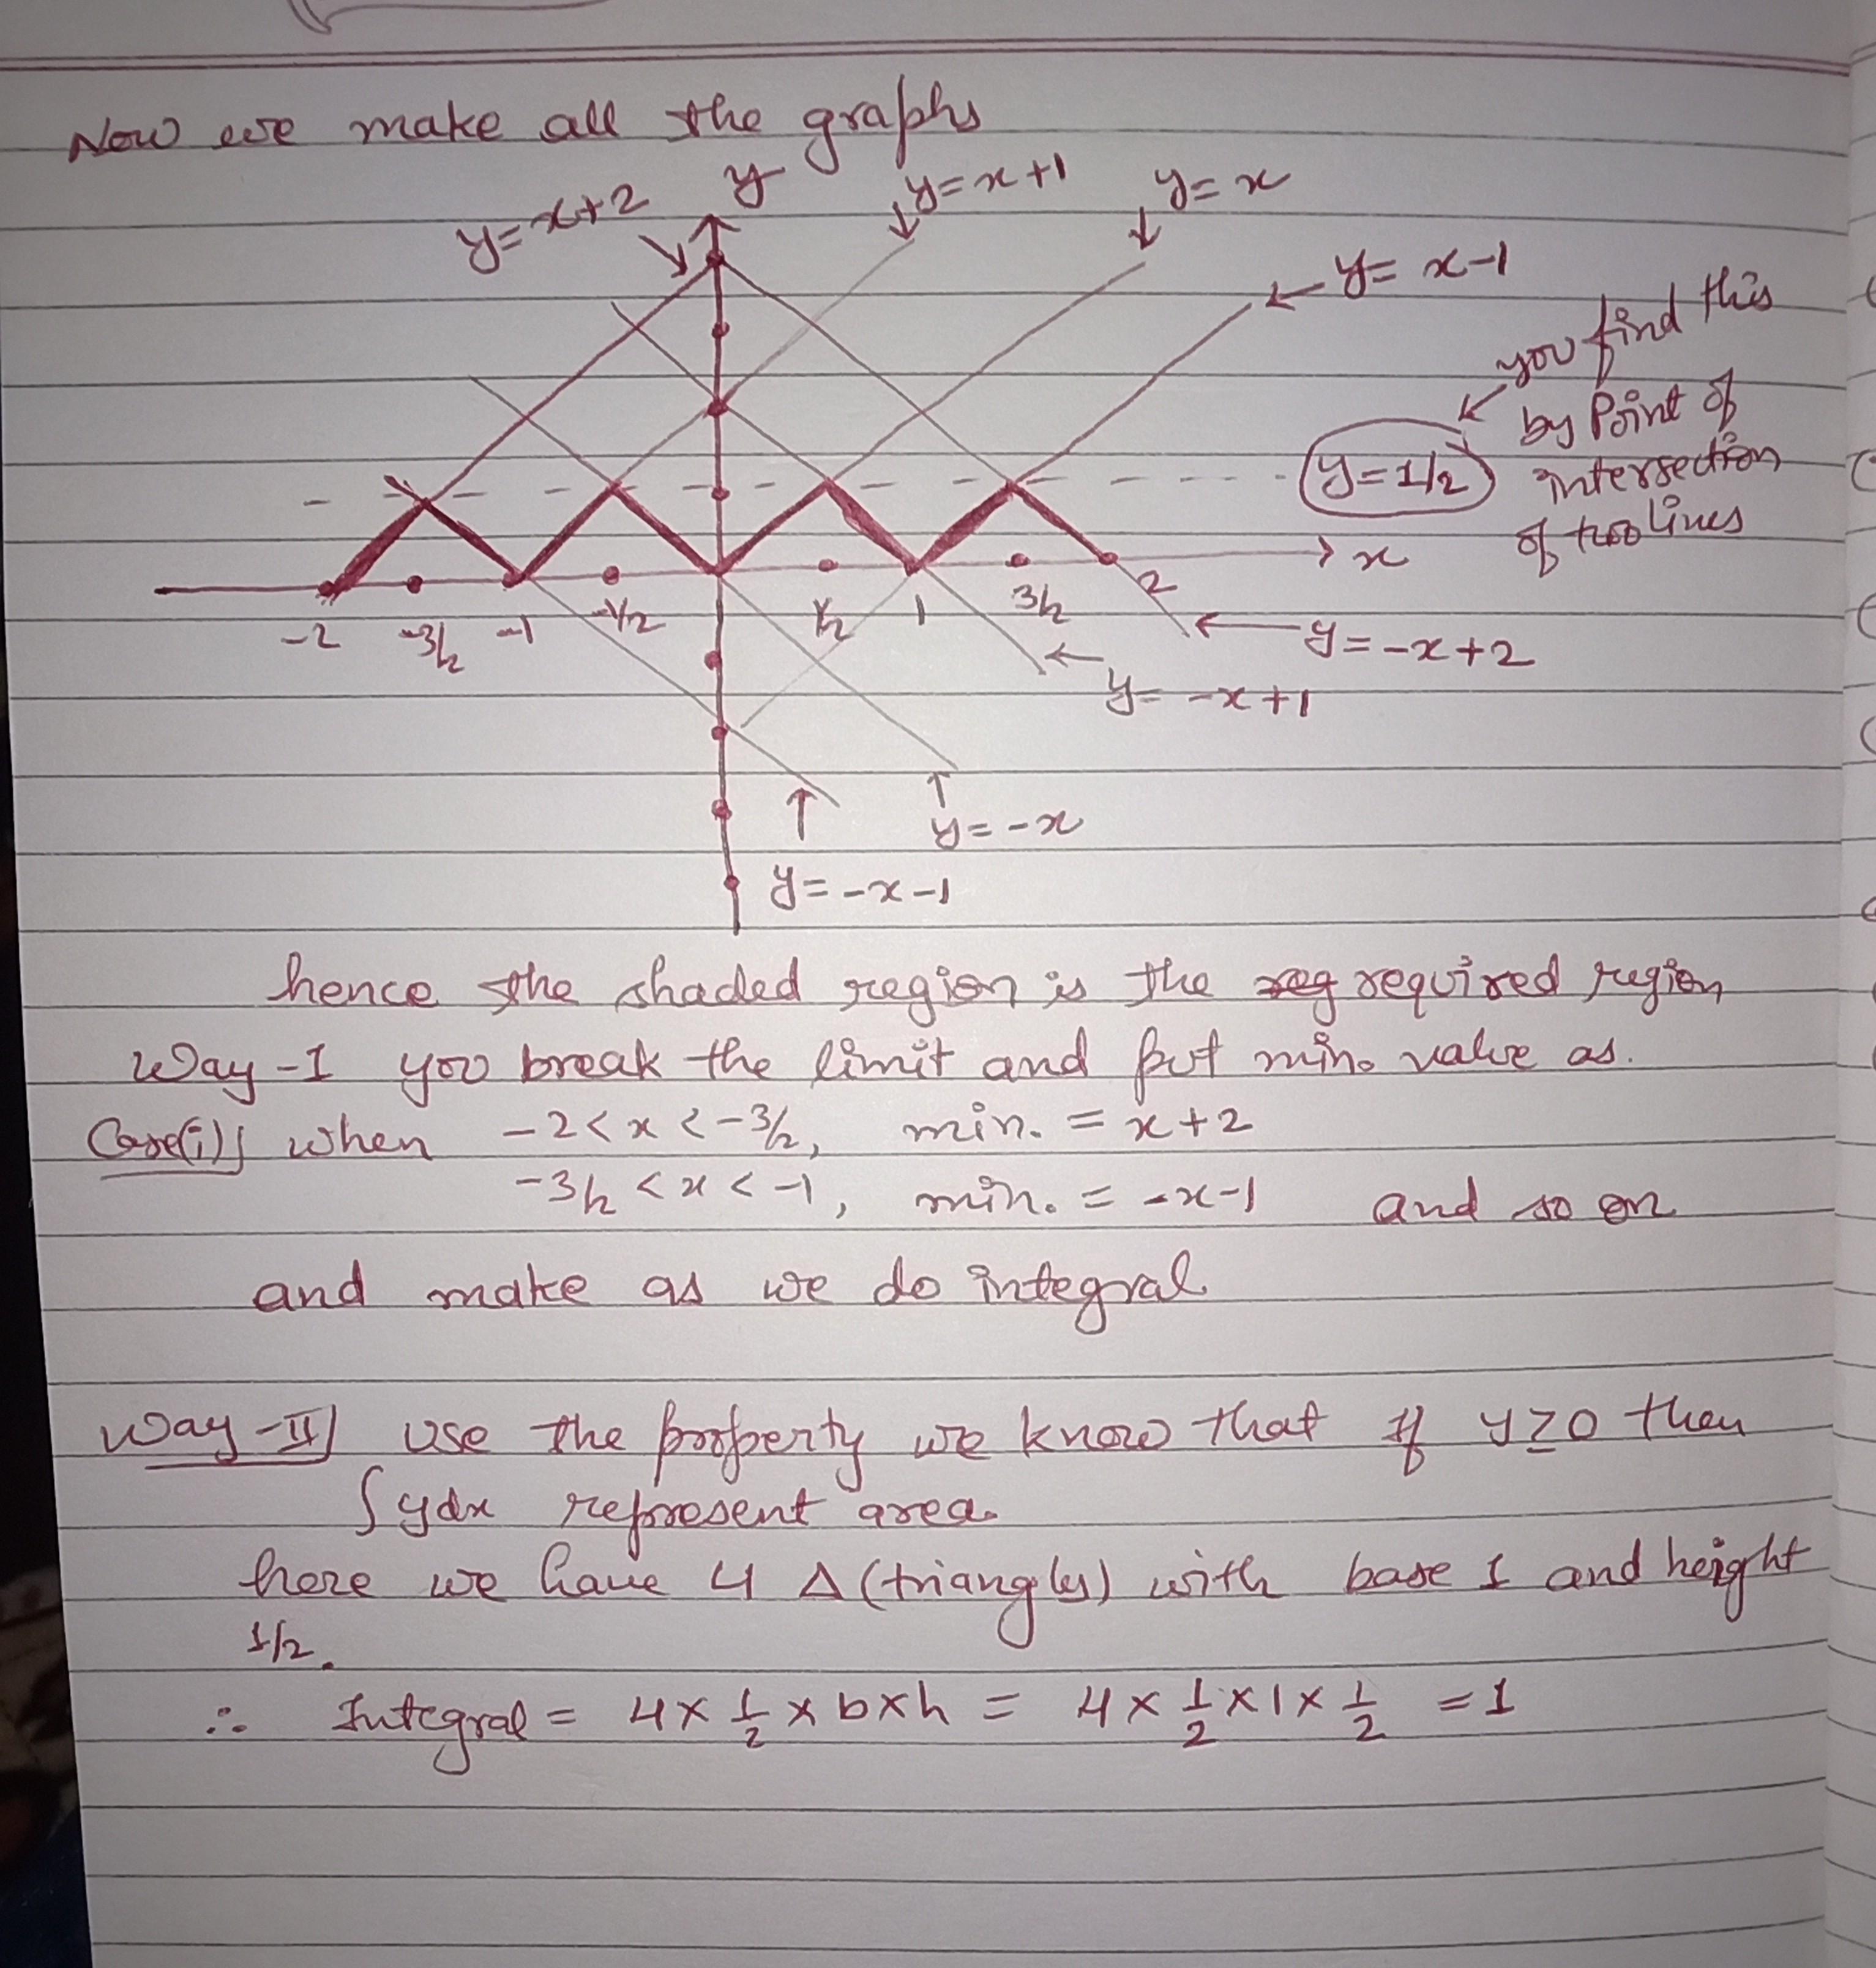 Now we make all the graphs
y
y=x+2
y=x+1
y=x
y=x-1
you find this
by Point of
intersection
of two lines
y=1/2
x
-2 -3/2 -1 -1/2 1/2 1 3/2 2
y=-x+2
y=-x+1
y=-x
y=-x-1
hence the shaded region is the reg required region
Way-I you break the limit and put min. value as.
Case(i) when -2<x<-3/2, min. = x+2
-3/2<x<-1, min. = -x-1 and so on
and make as we do integral.
Way-II) Use the property we know that if y≥0 then
∫ydx represent area.
here we have 4 Δ(triangles) with base 1 and height
1/2.
∴ Integral = 4×1/2×b×h = 4×1/2×1×1/2 =1